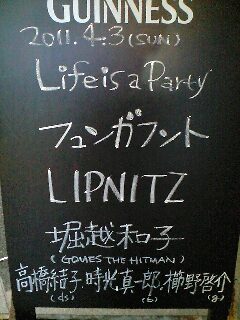 GUINNESS
2011.4.3(SUN)
Life is a Party
フンガフント
LIPNITZ
堀越和子
(GOMES THE HITMAN)
高橋結子.時光真一郎.櫛野啓介
(ds) (b) (g)